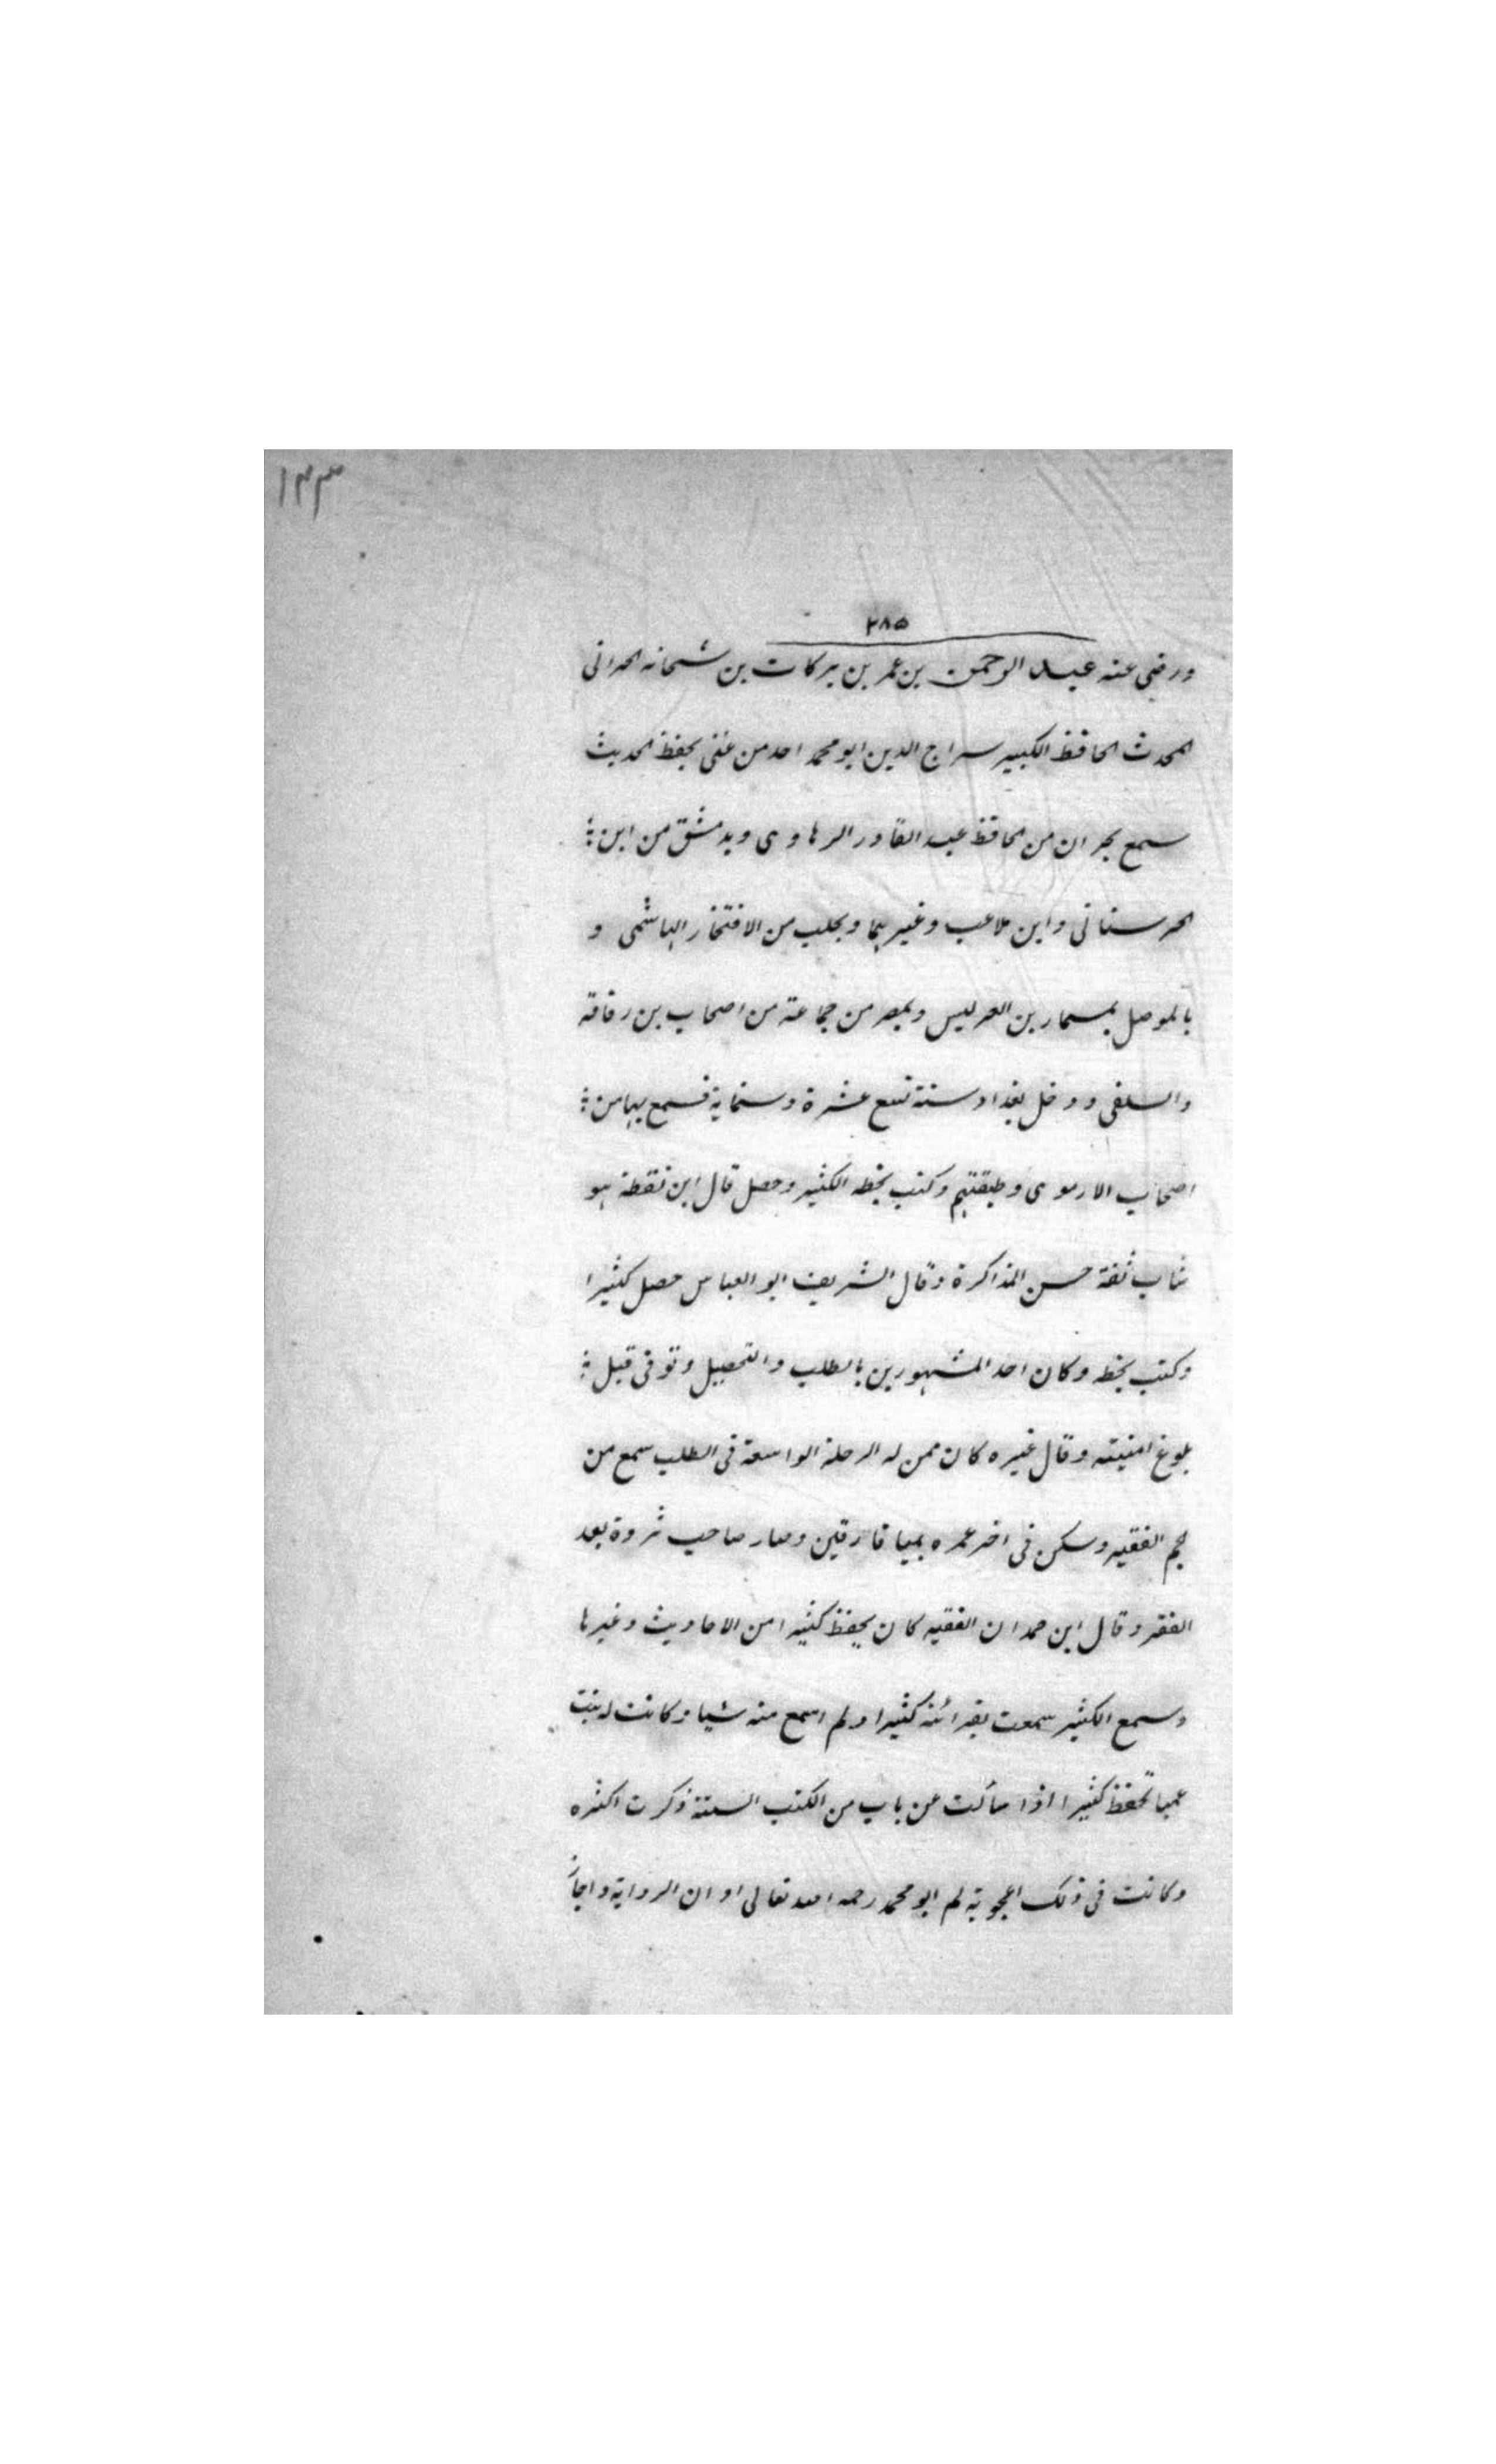 ١٣٣
٢٨٥
ورضى عنه عبد الرحمن بن عمر بن بركات بن شحانه الحرانى
المحدث الحافظ الكبير سراج الدين ابو محمد احد من عنى بحفظ الحديث
سمع بحران من الحافظ عبد القادر الرهاوى وبدمشق من ابن
الحرستانى وابن ملاعب وغيرهما وبحلب من الافتخار الهاشمى و
بالموصل بمسمار بن العريس وبمصر من جماعة من اصحاب بن رفاقة
والسلفى ودخل بغداد سنة تسع عشرة وستماية فسمع بها من
اصحاب الارموى وطبقتهم وكتب بخطه الكثير وحصل قال ابن نقطة هو
شاب ثقة حسن المذاكرة وقال الشريف ابو العباس حصل كثيرا
وكتب بخطه وكان احد المشهورين بالطلب والتحصيل وتوفى قبل
بلوغ امنيته وقال غيره كان ممن له الرحلة الواسعة فى الطلب سمع من
الفقيه وسكن فى اخر عمره بميا فارقين وصار صاحب ثروة بعد
الفقر وقال ابن حمدان الفقيه كان يحفظ كثيرا من الاحاديث وغيرها
وسمع الكثير سمعت بقرائته كثيرا ولم اسمع منه شيا وكانت له بنت
عميا تحفظ كثيرا اذا سألت عن باب من الكتب الستة ذكرت اكثره
وكانت فى ذلك اعجوبة لم ابو محمد رحمه الله تعالى اوان الرواية واجاز